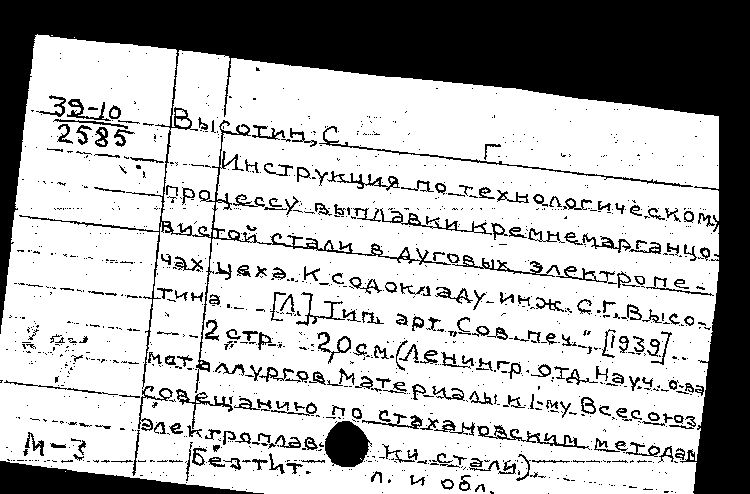 39-10
2585
Высотин, С. Г.
Инструкция по технологическому
процессу выплавки кремнемарганцо-
вистой стали в дуговых электропе-
чах цеха. К содокладу инж. С.Г. Высо-
тина. [Л.], Тип. арт. „Сов. печ.", [1939].
2 стр. 20 см. (Ленингр. отд. Науч. о-ва
металлургов. Материалы к 1-му Всесоюз.
совещанию по стахановским методам
электроплавки стали).
Без тит. л. и обл.
М-3